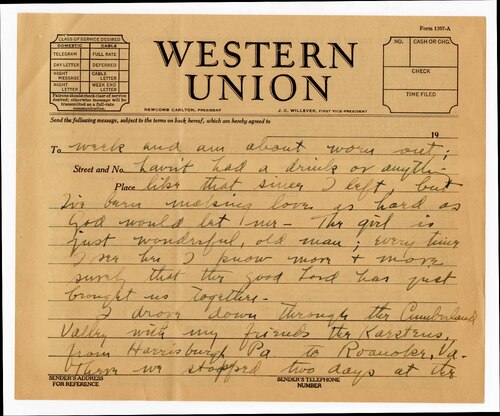 Form 1207-A
CLASS OF SERVICE DESIRED
DOMESTIC CABLE
TELEGRAM FULL RATE
DAY LETTER DEFERRED
NIGHT MESSAGE CABLE LETTER
NIGHT LETTER WEEK END LETTER
Patrons should check class of service desired; otherwise message will be transmitted as a full-rate communication.
WESTERN
UNION
NEWCOMB CARLTON, PRESIDENT J. C. WILLEVER, FIRST VICE-PRESIDENT
NO. CASH OR CHG.
CHECK
TIME FILED
Send the following message, subject to the terms on back hereof, which are hereby agreed to
19
To week and am about worn out;
Street and No. havn't had a drink or anything
Place like that since I left, but
I've been making love as hard as
God would let me - The girl is
just wonderful, old man; every time
I see her I know more & more
surely that the good Lord has just
brought us together -
I drove down through the Cumberland
Valley with my friends the Karstens,
from Harrisburgh Pa to Roanoke, Va.
There we stopped two days at the
SENDER'S ADDRESS FOR REFERENCE
SENDER'S TELEPHONE NUMBER